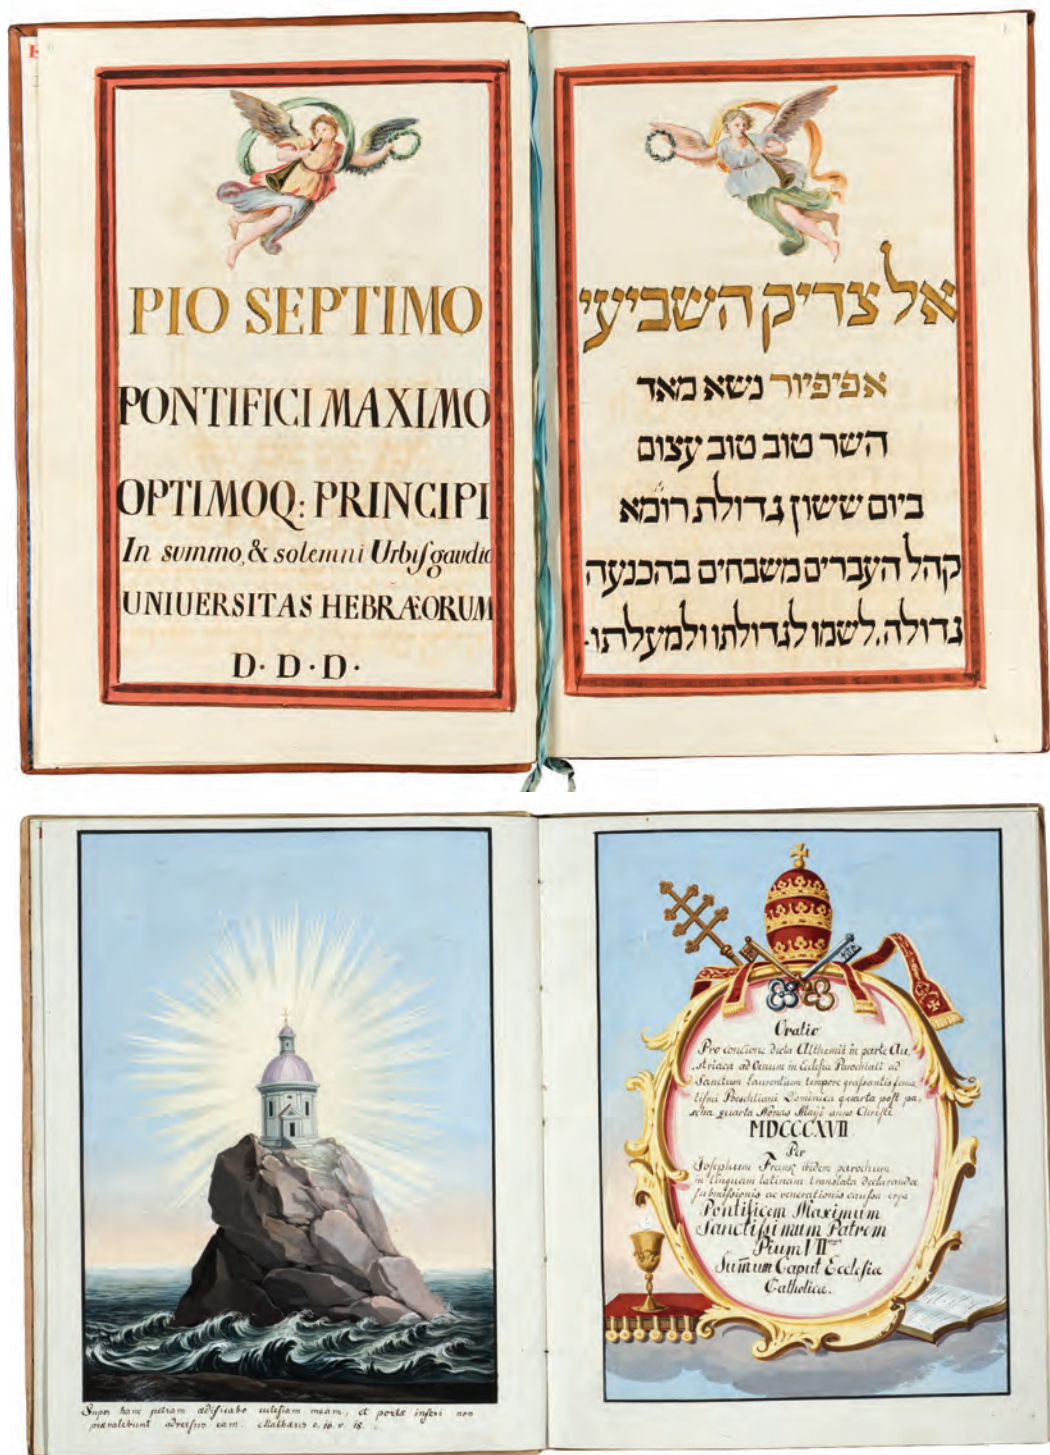 PIO SEPTIMO
PONTIFICI MAXIMO
OPTIMOQ: PRINCIPI
In summo, & solemni Urbis gaudio
UNIUERSITAS HEBRÆORUM
D· D· D·
אל צדיק השביעי
אפיפיור נשא מאד
השר טוב טוב עצום
ביום ששון גדולת רומא
קהל העברים משבחים בהכנעה
גדולה. לשמו לגדולתו ולמעלתו.
Super hanc petram ædificabo eclesiam meam, et portæ inferi non
prævalebunt adversus eam. Mathæus c. 16. v. 18.
Oratio
Pro concione dicta Althemii in parte Au,
striaca ad Oenum in Eclesia Parochiali ad
Sanctum Laurentium tempore grassantis fana,
tismi Poeschliani Dominica quarta post pa,
scha quarta Nonas Maji anno Christi
MDCCCXVII
Per
Josephum Frank ibidem parochum
in linguam latinam translata declarandæ
submissionis ac venerationis caussa erga
Pontificem Maximum
Sanctissimum Patrem
Pium VII
Sumum Caput Ecclesiæ
Catholicæ.